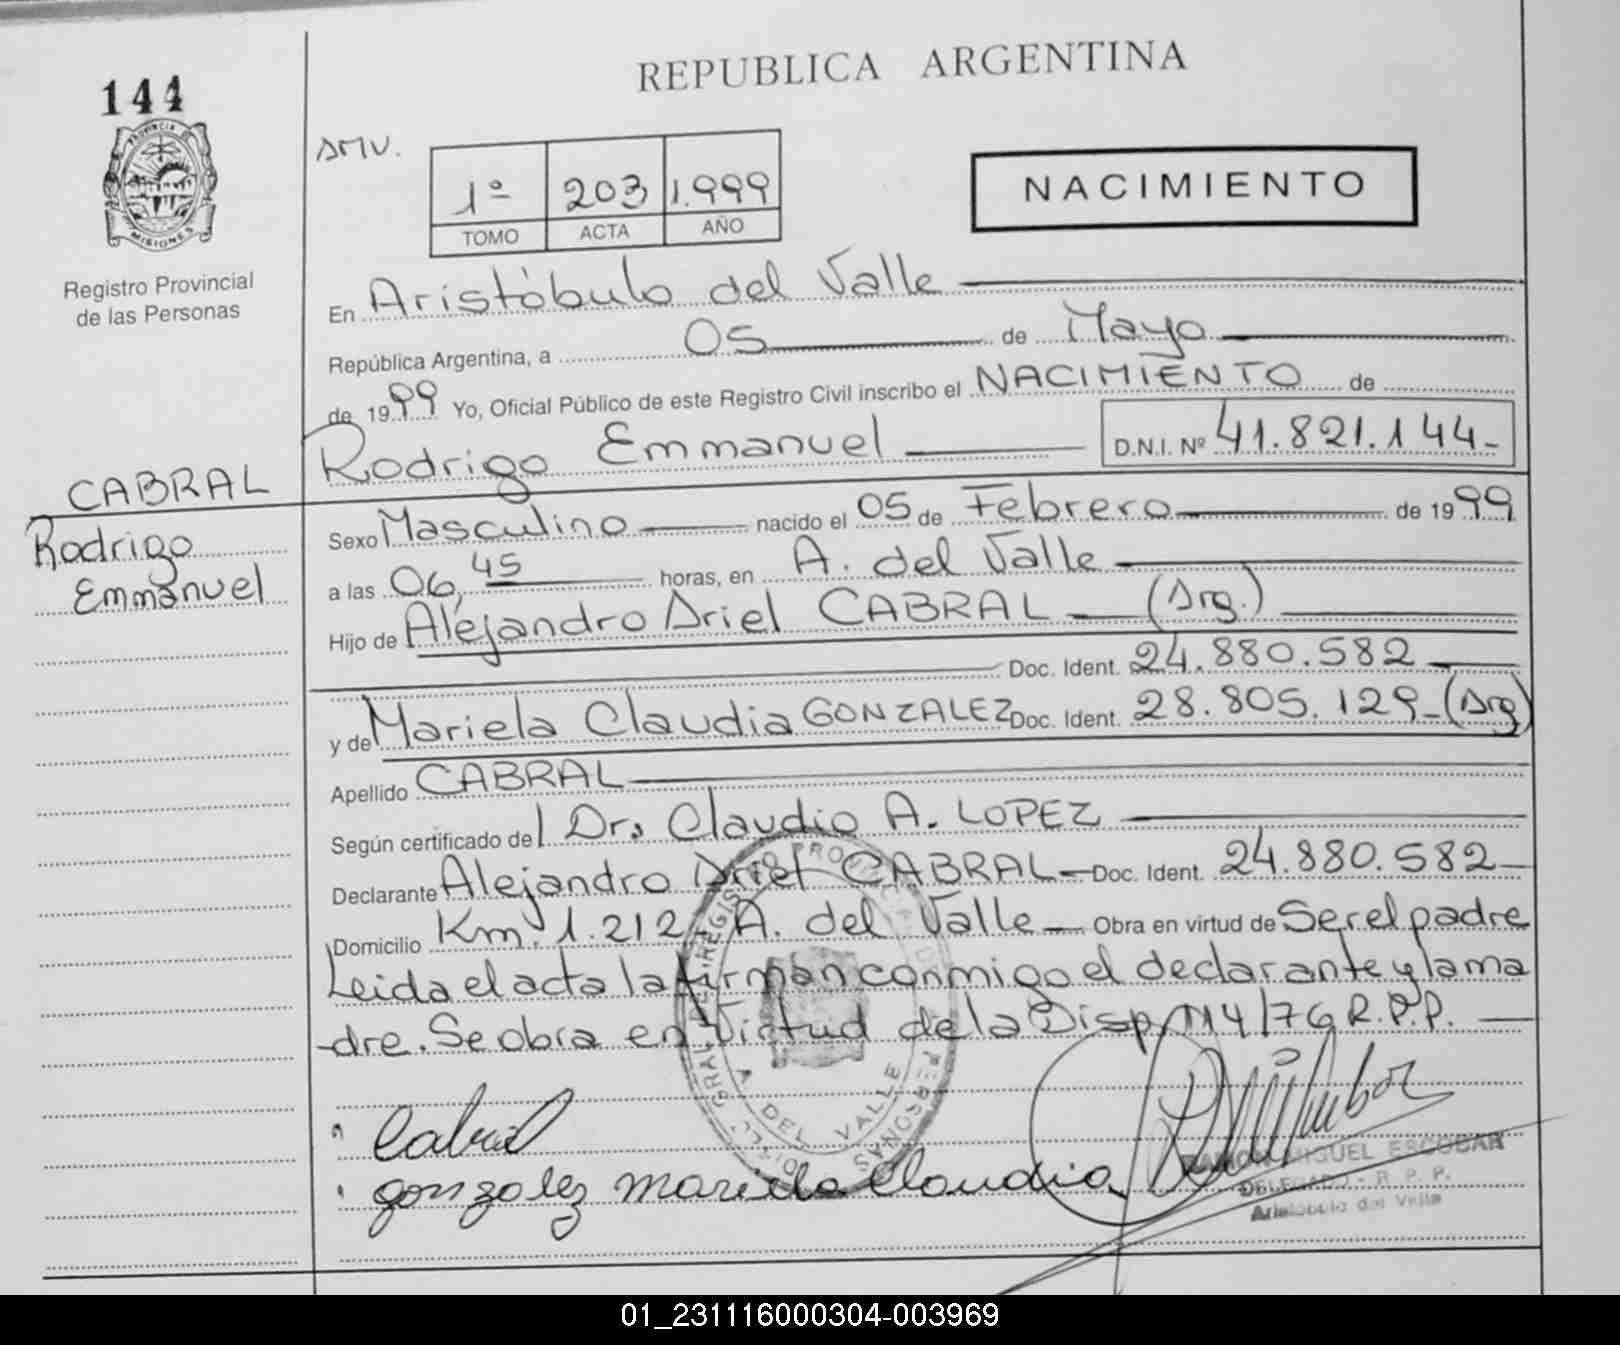 REPUBLICA ARGENTINA
144
PROVINCIA DE
MISIONES
Registro Provincial
de las Personas
AMV.
1º 203 1.999
TOMO ACTA AÑO
NACIMIENTO
En Aristóbulo del Valle
República Argentina, a 05 de Mayo
de 1999 Yo, Oficial Público de este Registro Civil inscribo el NACIMIENTO de
Rodrigo Emmanuel D.N.I. Nº 41.821.144-
CABRAL
Rodrigo
Emmanuel
Sexo Masculino nacido el 05 de Febrero de 1999
a las 06,45 horas, en A. del Valle
Hijo de Alejandro Ariel CABRAL (Arg.)
Doc. Ident. 24.880.582
y de Mariela Claudia GONZALEZ Doc. Ident. 28.805.129-(Arg)
Apellido CABRAL
Según certificado del Dr. Claudio A. LOPEZ
Declarante Alejandro Ariel CABRAL Doc. Ident. 24.880.582
Domicilio Km. 1.212- A. del Valle Obra en virtud de Ser el padre
Leida el acta la firman conmigo el declarante y la ma
dre. Se obra en virtud de la Disp. 114/76 R.P.P.
A. DEL VALLE
Cabral
gonzalez mariela Claudia
RAMON MIGUEL ESCOBAR
DELEGADO - R. P. P.
Aristóbulo del Valle
01_231116000304-003969